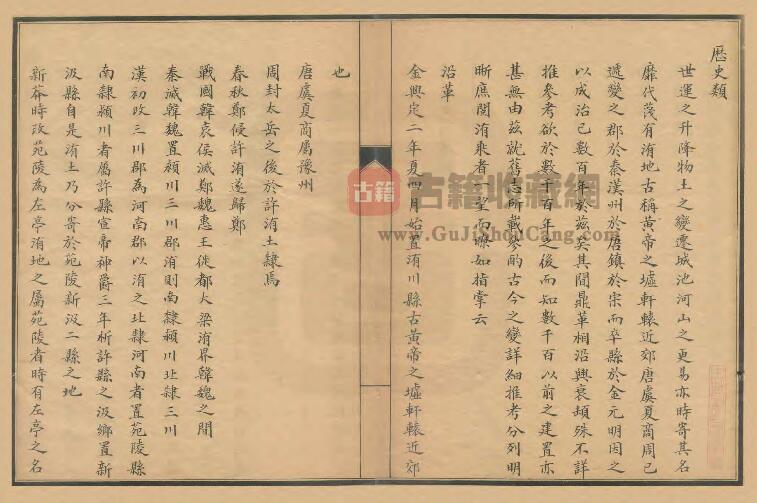 歷史類
世運之升降物土之變遷城池河山之更易亦時寄其名
靡代蔑有洧地古稱黃帝之墟軒轅近郊唐虞夏商周已
遞變之郡於秦漢州於唐鎮於宋而卒縣於金元明因之
以成治已數百年於茲矣其間鼎革相沿興衰頗殊不詳
推參考欲於數千百年之後而知數千百以前之建置亦
甚無由茲就舊志所載參酌古今之變詳細推考分列明
晰庶閱洧乘者一望而瞭如指掌云
沿革
金興定二年夏四月始置洧川縣古黃帝之墟軒轅近郊
也
唐虞夏商屬豫州
周封太岳之後於許洧土隸焉
春秋鄭侵許洧遂歸鄭
戰國韓哀侯滅鄭魏惠王徙都大梁洧界韓魏之間
秦滅韓魏置潁川三川郡洧則南隸潁川北隸三川
漢初改三川郡為河南郡以洧之北隸河南者置苑陵縣
南隸潁川者屬許縣宣帝神爵三年析許縣之汲鄉置新
汲縣自是洧土乃分寄於苑陵新汲二縣之地
新莽時改苑陵為左亭洧地之屬苑陵者時有左亭之名
古籍
古籍收藏網
www.GuJiShouCang.com